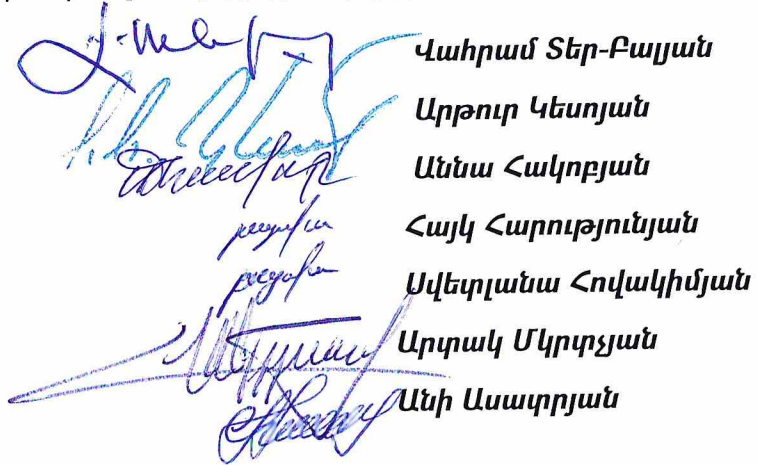 Վահրամ Տեր-Բալյան
Արթուր Կեսոյան
Աննա Հակոբյան
բացակա Հայկ Հարությունյան
բացակա Սվետլանա Հովակիմյան
Արտակ Մկրտչյան
Անի Ասատրյան